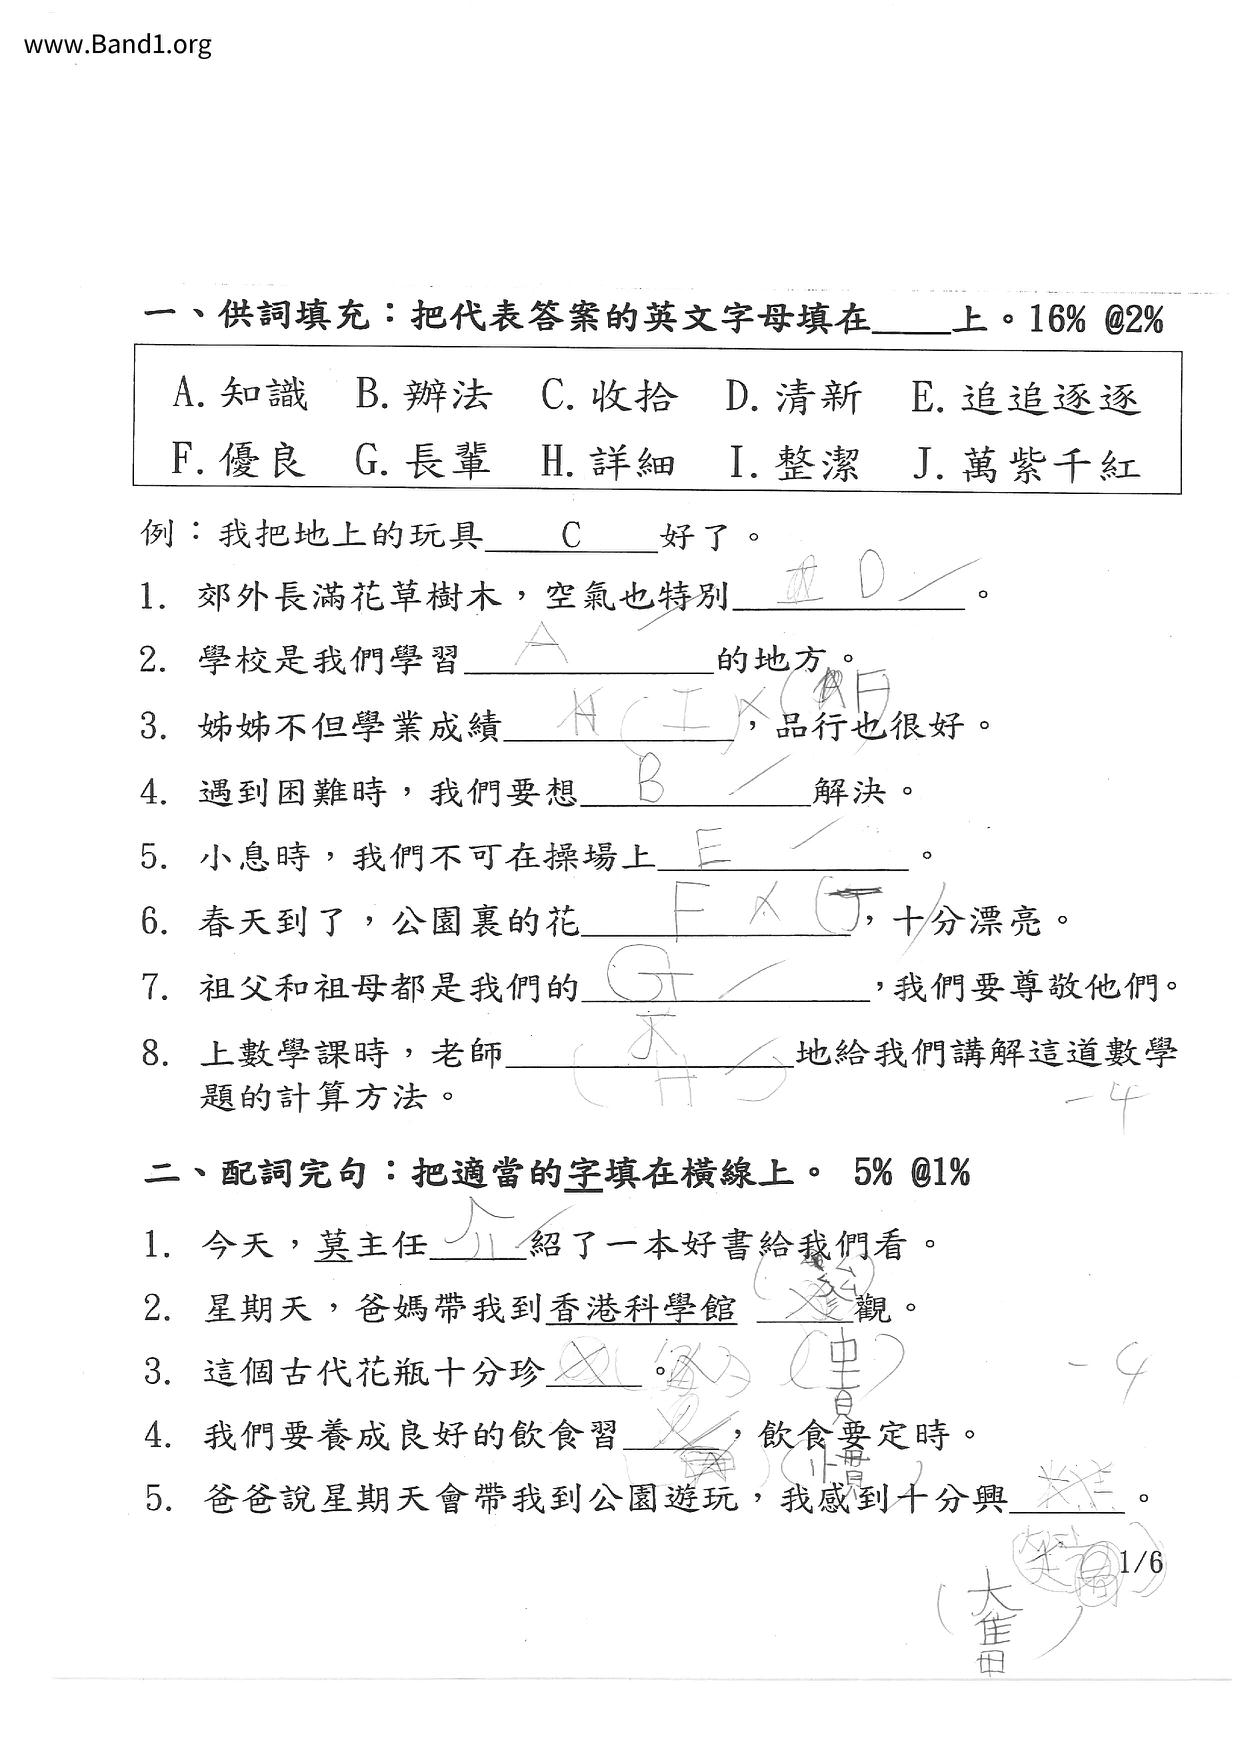 www.Band1.org
一、供詞填充：把代表答案的英文字母填在____上。16% @2%
A. 知識 B. 辦法 C. 收拾 D. 清新 E. 追追逐逐
F. 優良 G. 長輩 H. 詳細 I. 整潔 J. 萬紫千紅
例：我把地上的玩具____C____好了。
1. 郊外長滿花草樹木，空氣也特別____D____。
2. 學校是我們學習____A____的地方。
3. 姊姊不但學業成績____H (I) (F)____，品行也很好。
4. 遇到困難時，我們要想____B____解決。
5. 小息時，我們不可在操場上____E____。
6. 春天到了，公園裏的花____F (J)____，十分漂亮。
7. 祖父和祖母都是我們的____G____，我們要尊敬他們。
8. 上數學課時，老師____(H)____地給我們講解這道數學
題的計算方法。
-4
二、配詞完句：把適當的字填在橫線上。 5% @1%
1. 今天，莫主任__介__紹了一本好書給我們看。
2. 星期天，爸媽帶我到香港科學館 ____(參)觀。
3. 這個古代花瓶十分珍____。(貴)
-4
4. 我們要養成良好的飲食習____，飲食要定時。
(慣)
5. 爸爸說星期天會帶我到公園遊玩，我感到十分興____。
1/6
(奮)